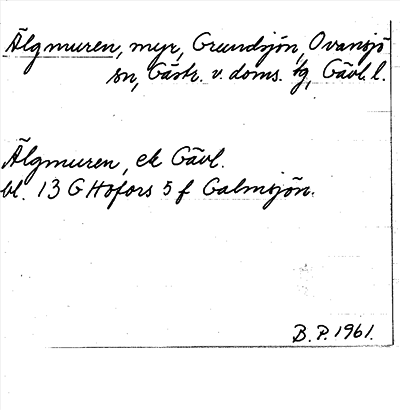 Älgmuren, myr, Grundsjön, Ovansjö
sn, Gästr. v. doms. tg, Gävl. l.
Älgmuren, ek Gävl.
bl. 13 G Hofors 5 f Galmsjön.
B.P. 1961.